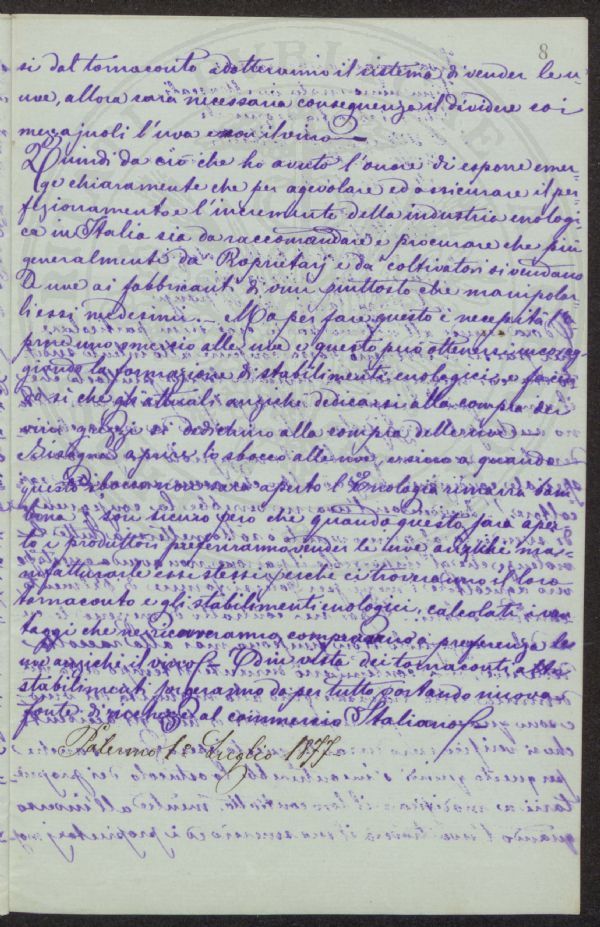 8
si dal tornaconto adotteranno il sistema di vender le u=
uve, allora sarà necessaria conseguenza il dividere coi
mezzajuoli l'uva e non il vino
Quindi da ciò che ho avuto l'onore di esporre emer=
ge chiaramente che per agevolare ed assicurare il per=
fezionamento e l'incremento della industria enologi=
ca in Italia sia da raccomandare e procurare che più
generalmente da Proprietarj e da coltivatori si vendano
le uve ai fabbricanti di vini piuttosto che manipolar=
li essi medesimi. Ma per fare questo è
uno alle uve e questo può ottenersi incorag=
giando la formazione di stabilimenti enologici e facen
do si che gli attuali anziche dedicarsi alla compra dei
vini grezzi si dedichino alla compra delle uve
Bisogna aprire lo sbocco alle uve, ersino a quando
questo sbocco non sarà aperto l'Enologia rimarrà bam=
bona; e son sicuro però che quando questo sara aper=
to i produttori preferiranno vender le uve anziche ma=
nifatturarle essi stessi perche ci troveranno il loro
tornaconto e gli stabilimenti enologici, calcolati i van
taggi che ne ricaveranno, compreranno a preferenza le
uve anziche il vino. Ed in vista dei tornaconti altri
stabilimenti sorgeranno da per tutto portando nuova
fonte di ricchezza al commercio Italiano
Palermo 1º Luglio 1877